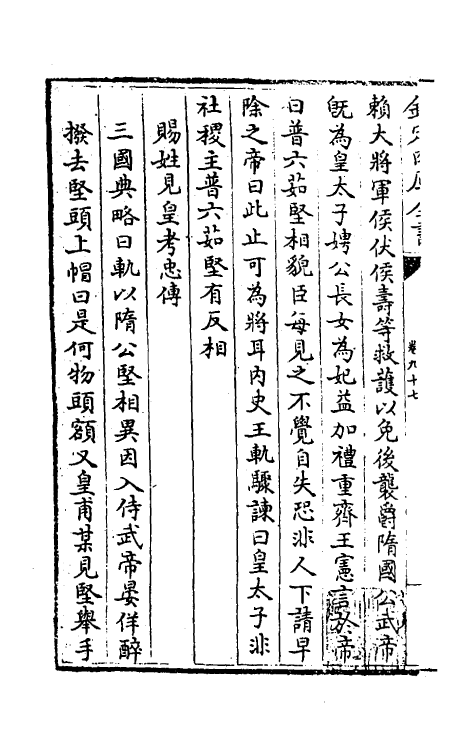 欽定四庫全書
卷九十七
賴大將軍侯伏侯壽等救護以免後襲爵隋國公武帝
旣為皇太子娉公長女為妃益加禮重齊王憲言於帝
曰普六茹堅相貌臣每見之不覺自失恐非人下請早
除之帝曰此止可為將耳内史王軌驟諫曰皇太子非
社稷主普六茹堅有反相
賜姓見皇考忠傳
三國典略曰軌以隋公堅相異因入侍武帝宴佯醉
撥去堅頭上帽曰是何物頭額又皇甫某見堅舉手